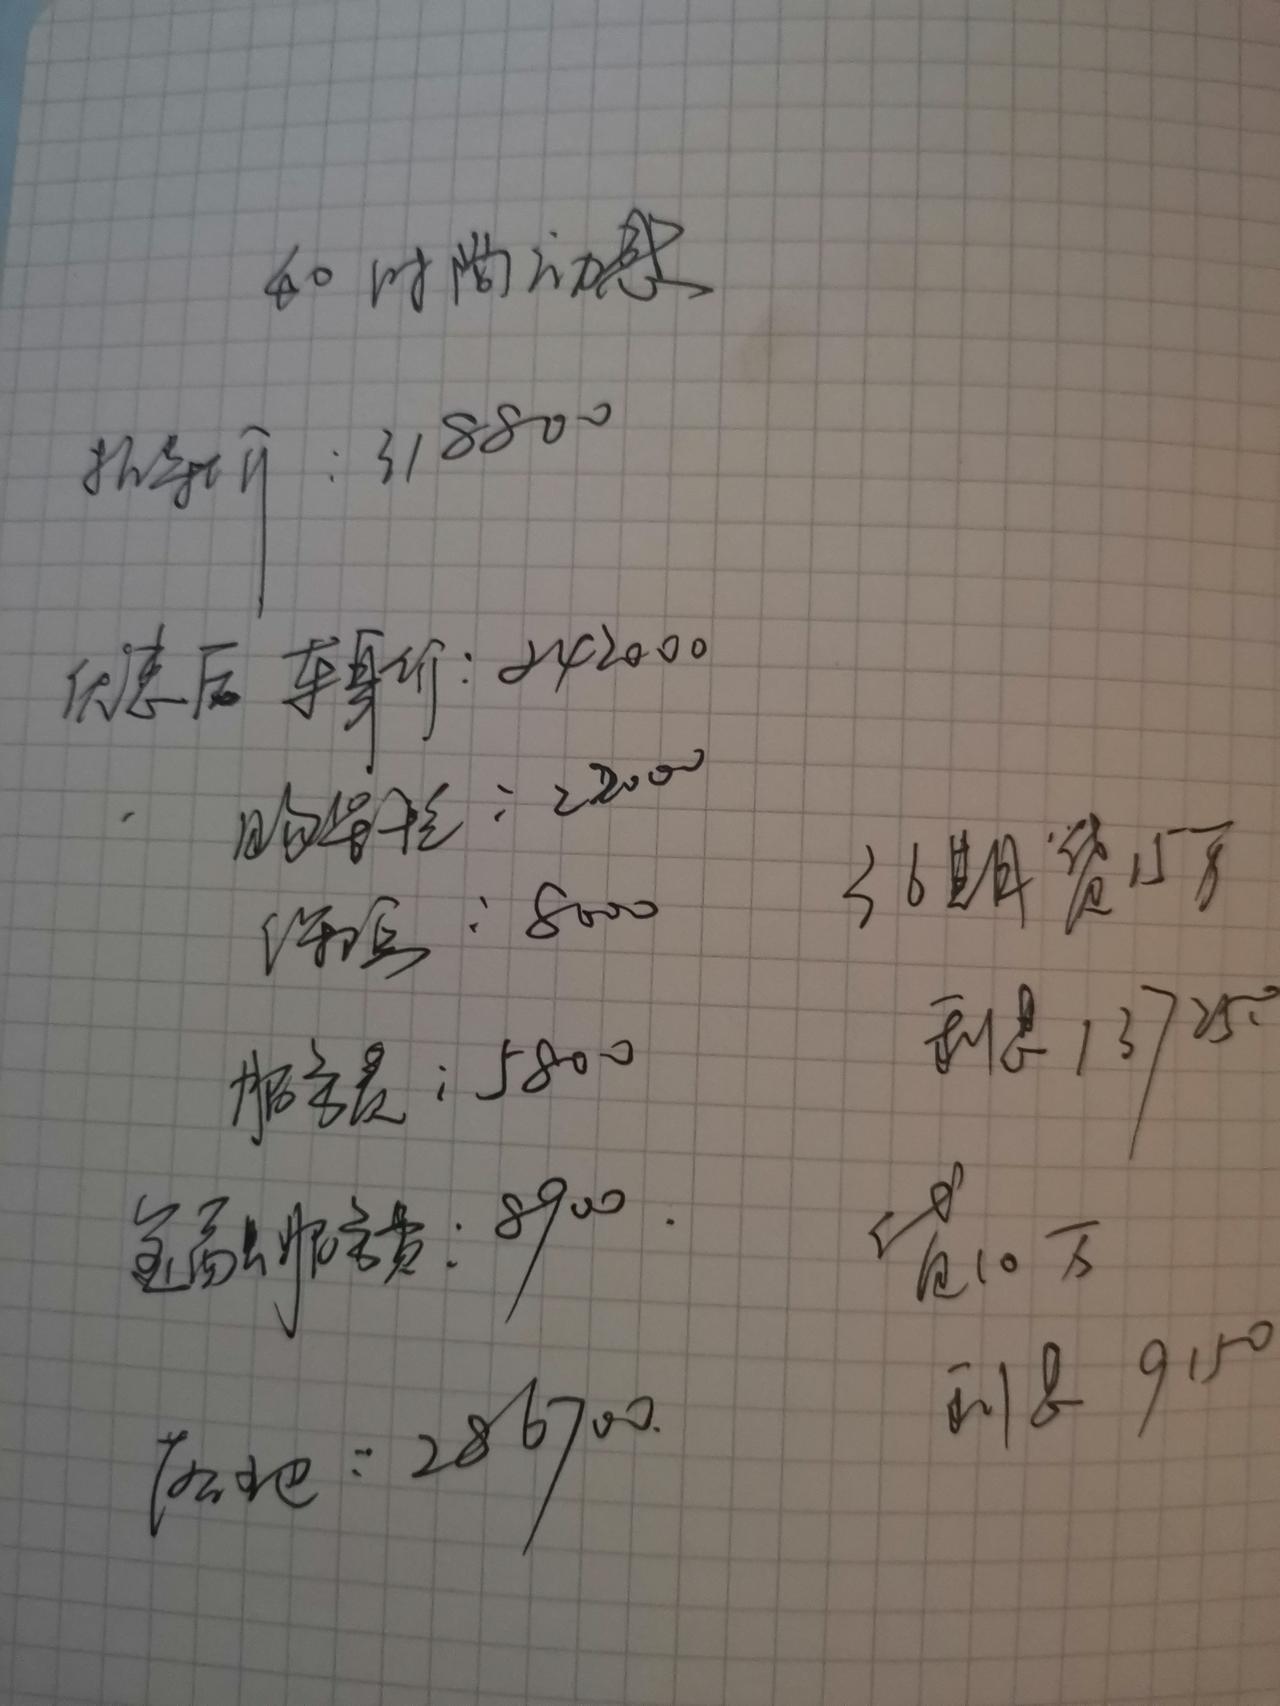 40 时尚动感
指导价：318800
优惠后 车身价：242000
购置税：22000
保险：8000
服务费：5800
金融服务费：8900.
落地：286700.
36期 贷15万
利息13725.
贷10万
利息 9150